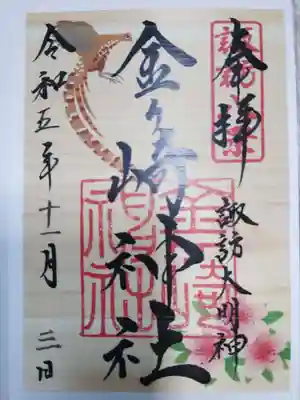 奉拝
諏訪大明神
金ヶ崎神社
令和五年十一月三日